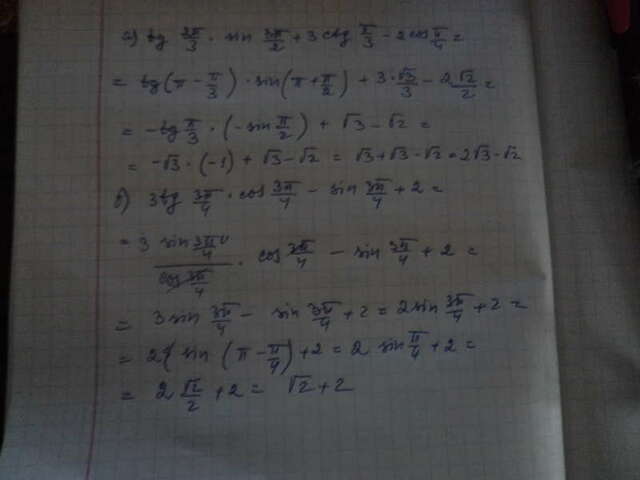 а) tg 2π/3 · sin 3π/2 + 3 ctg π/3 - 2 cos π/4 =
= tg(π - π/3) · sin(π + π/2) + 3·√3/3 - 2 √2/2 =
= -tg π/3 · (-sin π/2) + √3 - √2 =
= -√3 · (-1) + √3 - √2 = √3 + √3 - √2 = 2√3 - √2
б) 3 tg 3π/4 · cos 3π/4 - sin 3π/4 + 2 =
= 3 sin 3π/4 / cos 3π/4 · cos 3π/4 - sin 3π/4 + 2 =
= 3 sin 3π/4 - sin 3π/4 + 2 = 2 sin 3π/4 + 2 =
= 2 sin (π - π/4) + 2 = 2 sin π/4 + 2 =
= 2 √2/2 + 2 = √2 + 2